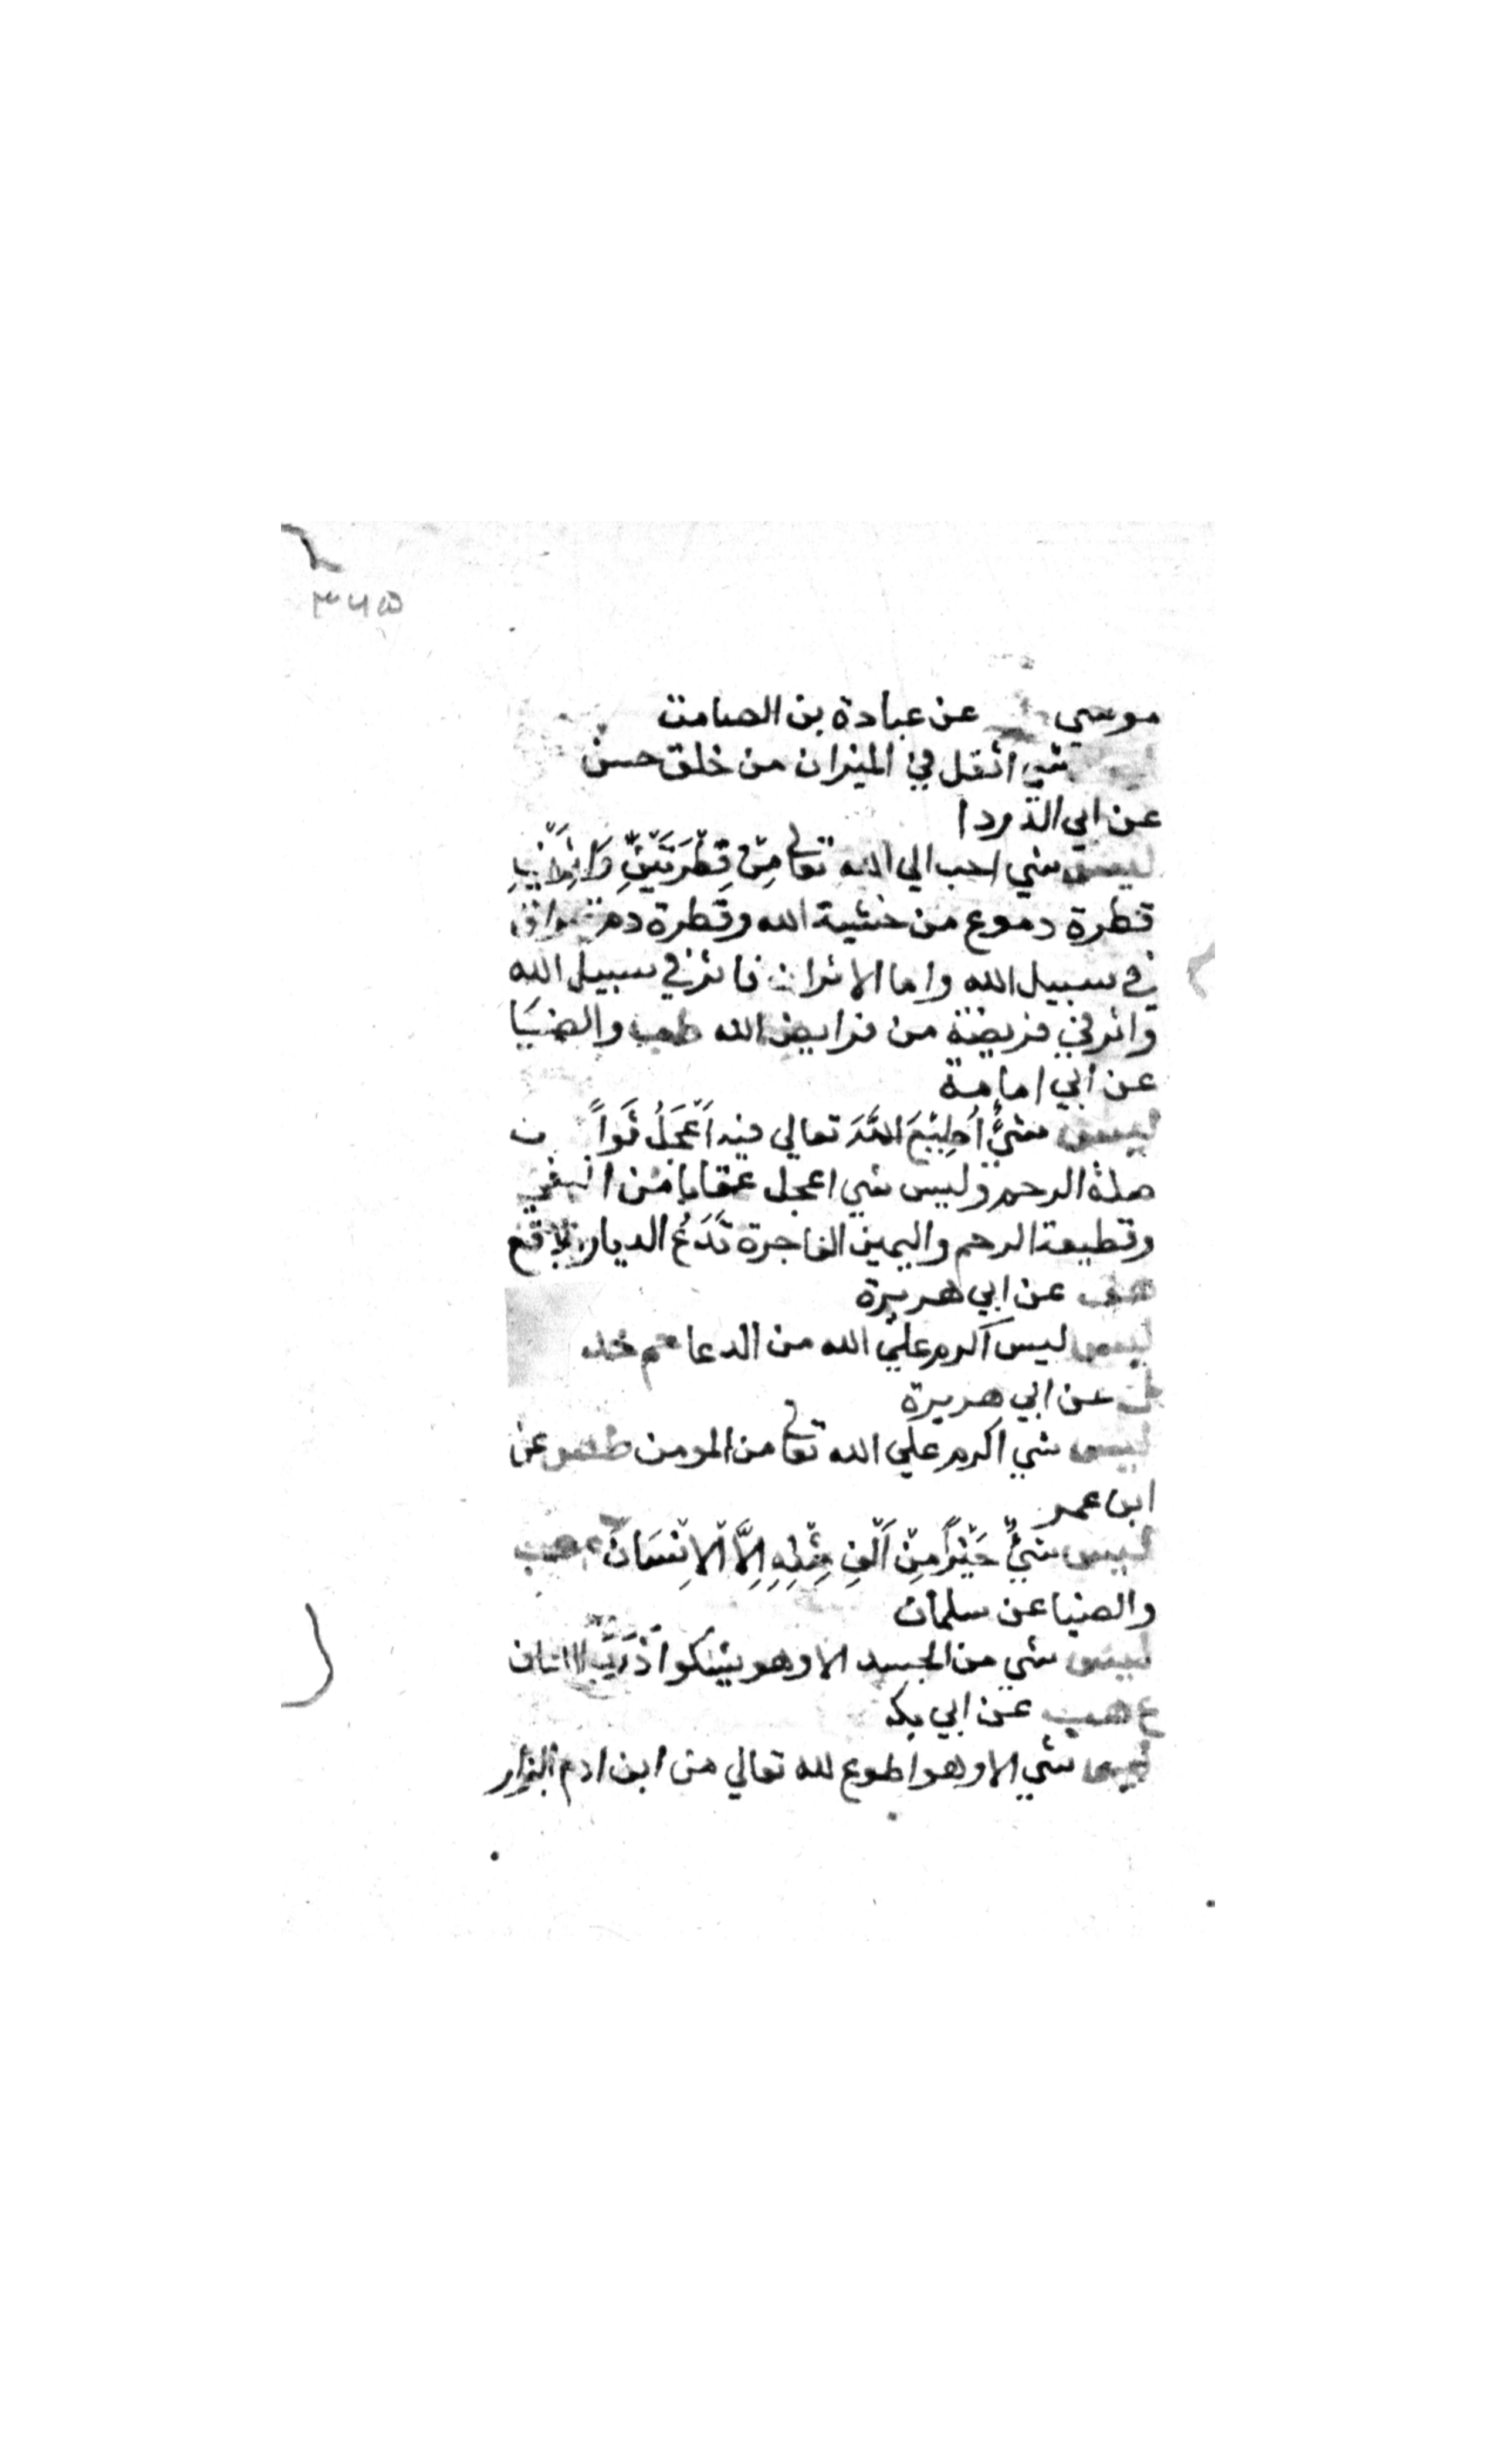 ٣٦٥
موسي عن عبادة بن الصامت
شي اثقل في الميزان من خلق حسن
عن ابي الدردا
ليس شي احب الي الله تعا مِنْ قَطْرَتَيْنِ وَاثَرَيْنِ
قطرة دموع من خشية الله وقطرة دم تهراق
في سبيل الله واما الاثران فاثر في سبيل الله
واثر في فريضة من فرايض الله طب والضيا
عن ابي امامة
ليس شَيْءٌ اُطِيْعَ اللهَ تعالي فيه اَعْجَلُ ثَوَاباً
صلة الرحم وليس شي اعجل عقابا من البغي
وقطيعة الرحم واليمين الفاجرة تَدَعُ الديار بلاقع
هق عن ابي هريرة
ليس ليس اكرم علي الله من الدعا حم خد
ك عن ابي هريرة
ليس شي اكرم علي الله تعا من المومن طس عن
ابن عمر
ليس شَيْءٌ خَيْراً مِنْ اَلْفِ مِثْلِهِ اِلَّا الْاِنْسَانَ طب
والضيا عن سلمان
ليس شي من الجسد الا وهو يشكوا ذَرَبَ اللسان
ع هب عن ابي بكر
ليس شي الا وهو اطوع لله تعالي من ابن ادم البزار